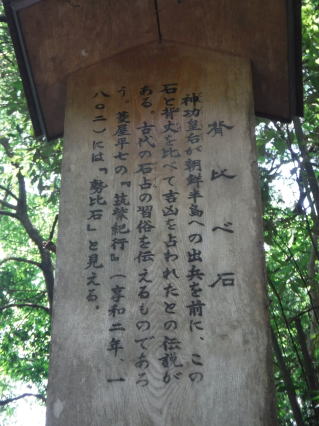 脊比べ石
神功皇后が朝鮮半島への出兵を前に、この
石と背丈を比べて吉凶を占われたとの伝説が
ある。古代の石占の習俗を伝えるものであろ
う。菱屋平七の『筑紫紀行』（享和二年、一
八〇二）には「勢比石」と見える。